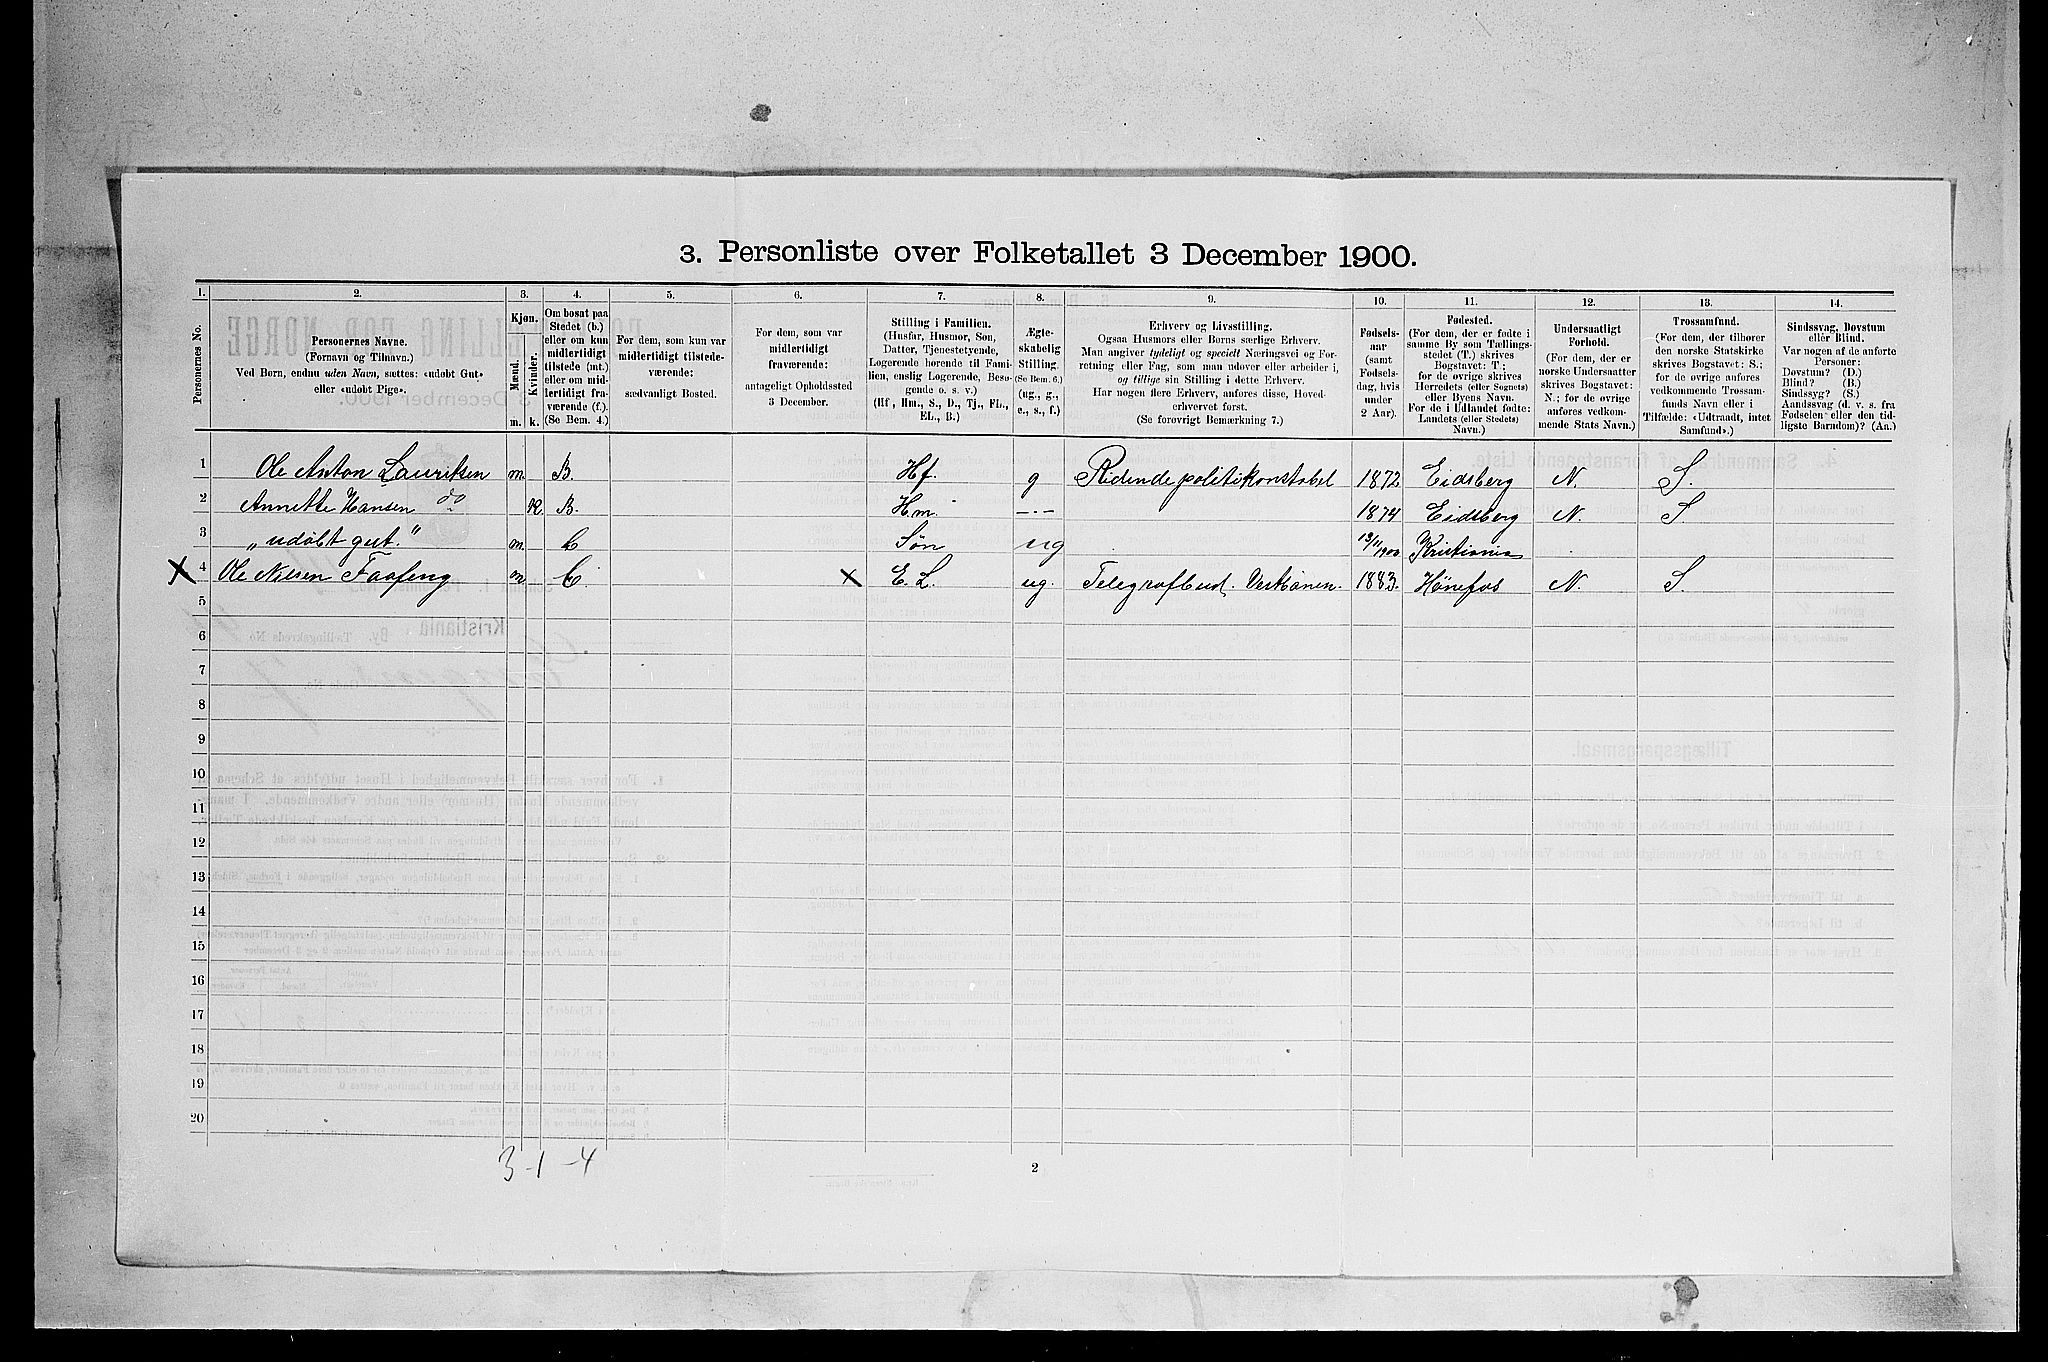 3. Personliste over Folketallet 3 December 1900.
1. 2. 3. 4. 5. 6. 7. 8. 9. 10. 11. 12. 13. 14.
Personernes No.
Personernes Navne.
(Fornavn og Tilnavn.)
Ved Børn, endnu uden Navn, sættes: «udøbt Gut»
eller «udøbt Pige».
Kjøn.
Mænd.
Kvinder.
m. k.
Om bosat paa
Stedet (b.)
eller om kun
midlertidigt
tilstede (mt.)
eller om mid-
lertidigt fra-
værende (f.).
(Se Bem. 4.)
For dem, som kun var
midlertidigt tilstede-
værende:
sædvanligt Bosted.
For dem, som var
midlertidigt
fraværende:
antageligt Opholdssted
3 December.
Stilling i Familien.
(Husfar, Husmor, Søn,
Datter, Tjenestetyende,
Logerende hørende til Fami-
lien, enslig Logerende, Besø-
gende o. s. v.)
(Hf., Hm., S., D., Tj., FL.,
EL., B.)
Ægte-
skabelig
Stilling.
(Se Bem. 6.)
(ug., g.,
e., s., f.)
Erhverv og Livsstilling.
Ogsaa Husmors eller Børns særlige Erhverv.
Man angiver tydeligt og specielt Næringsvei og For-
retning eller Fag, som man udøver eller arbeider i,
og tillige sin Stilling i dette Erhverv.
Har nogen flere Erhverv, anføres disse, Hoved-
erhvervet først.
(Se forøvrigt Bemærkning 7.)
Fødsels-
aar
(samt
Fødsels-
dag, hvis
under
2 Aar).
Fødested.
(For dem, der er fødte i
samme By som Tællings-
stedet (T.) skrives
Bogstavet: T.;
for de øvrige skrives
Herredets (eller Sognets)
eller Byens Navn.
For de i Udlandet fødte:
Landets (eller Stedets)
Navn.)
Undersaatligt
Forhold.
(For dem, der er
norske Undersaatter
skrives Bogstavet:
N.; for de øvrige
anføres vedkom-
mende Stats Navn.)
Trossamfund.
(For dem, der tilhører
den norske Statskirke
skrives Bogstavet: S.;
for de øvrige anføres
vedkommende Trossam-
funds Navn eller i
Tilfælde: «Udtraadt, intet
Samfund».)
Sindssvag, Døvstum
eller Blind.
Var nogen af de anførte
Personer:
Døvstum? (D.)
Blind? (B.)
Sindssyg? (S.)
Aandssvag (d. v. s. fra
Fødselen eller den tid-
ligste Barndom)? (Aa.)
1 Ole Anton Lauritsen m. B. Hf. g Ridende politikonstabel 1872 Eidsberg N. S.
2 Annette Hansen do K. B. Hm. -"- 1874 Eidsberg N. S
3 „udøbt gut." m. b Søn ug 13/11 1900 Kristiania
X 4 Ole Nilsen Faafeng m b. x E. L. ug. Telegrafbud. 1883. Hønefos N. S.
5
6
7
8
9
10
11
12
13
14
15
16
17
18
19
20
3-1-4
2